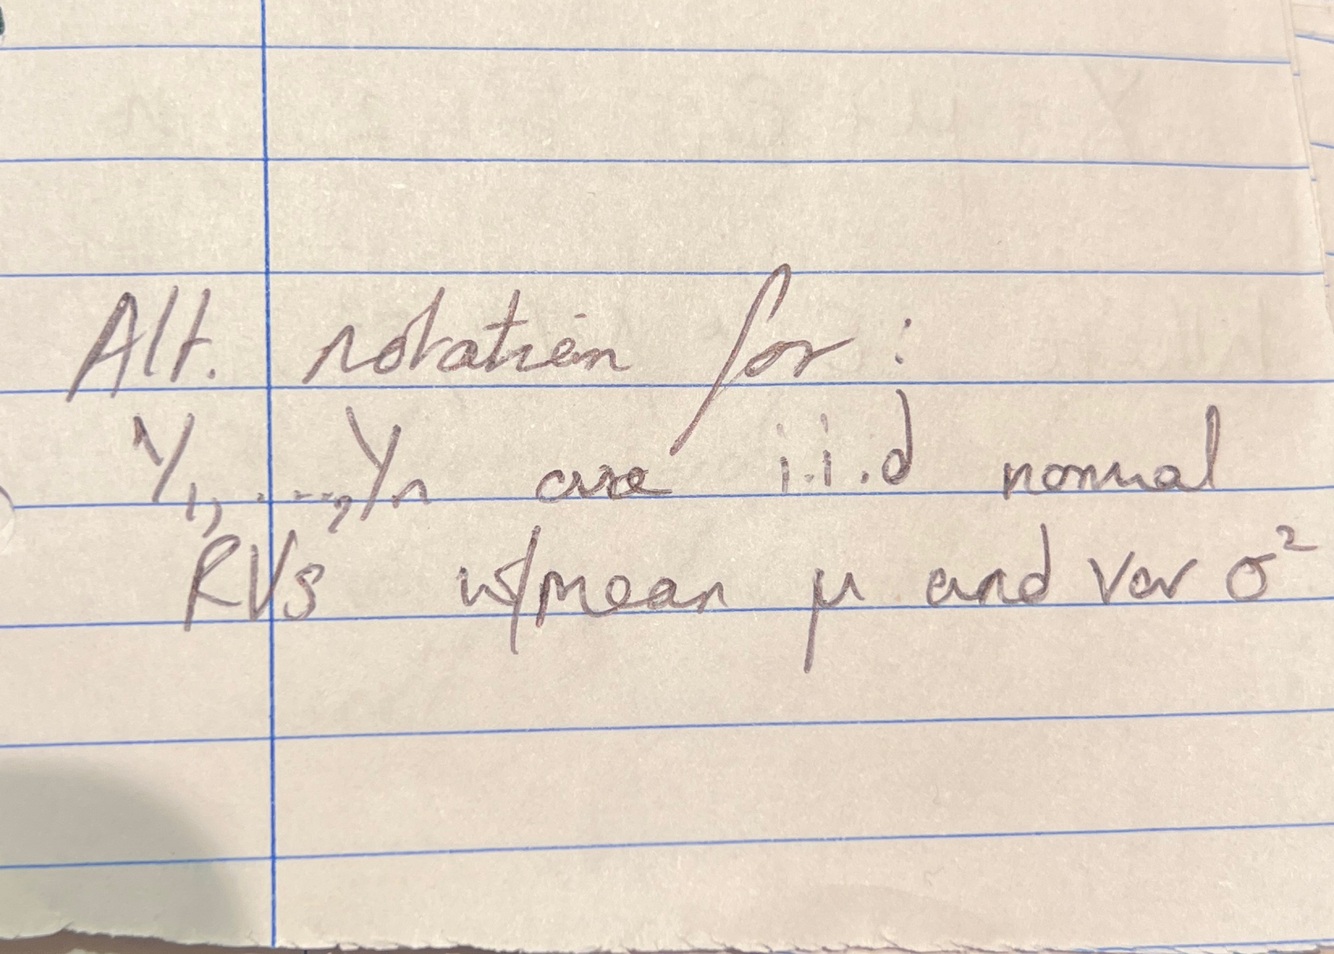 Alt. notation for:
Y₁, ...., Yₙ are i.i.d normal
RVs w/mean μ and var σ²